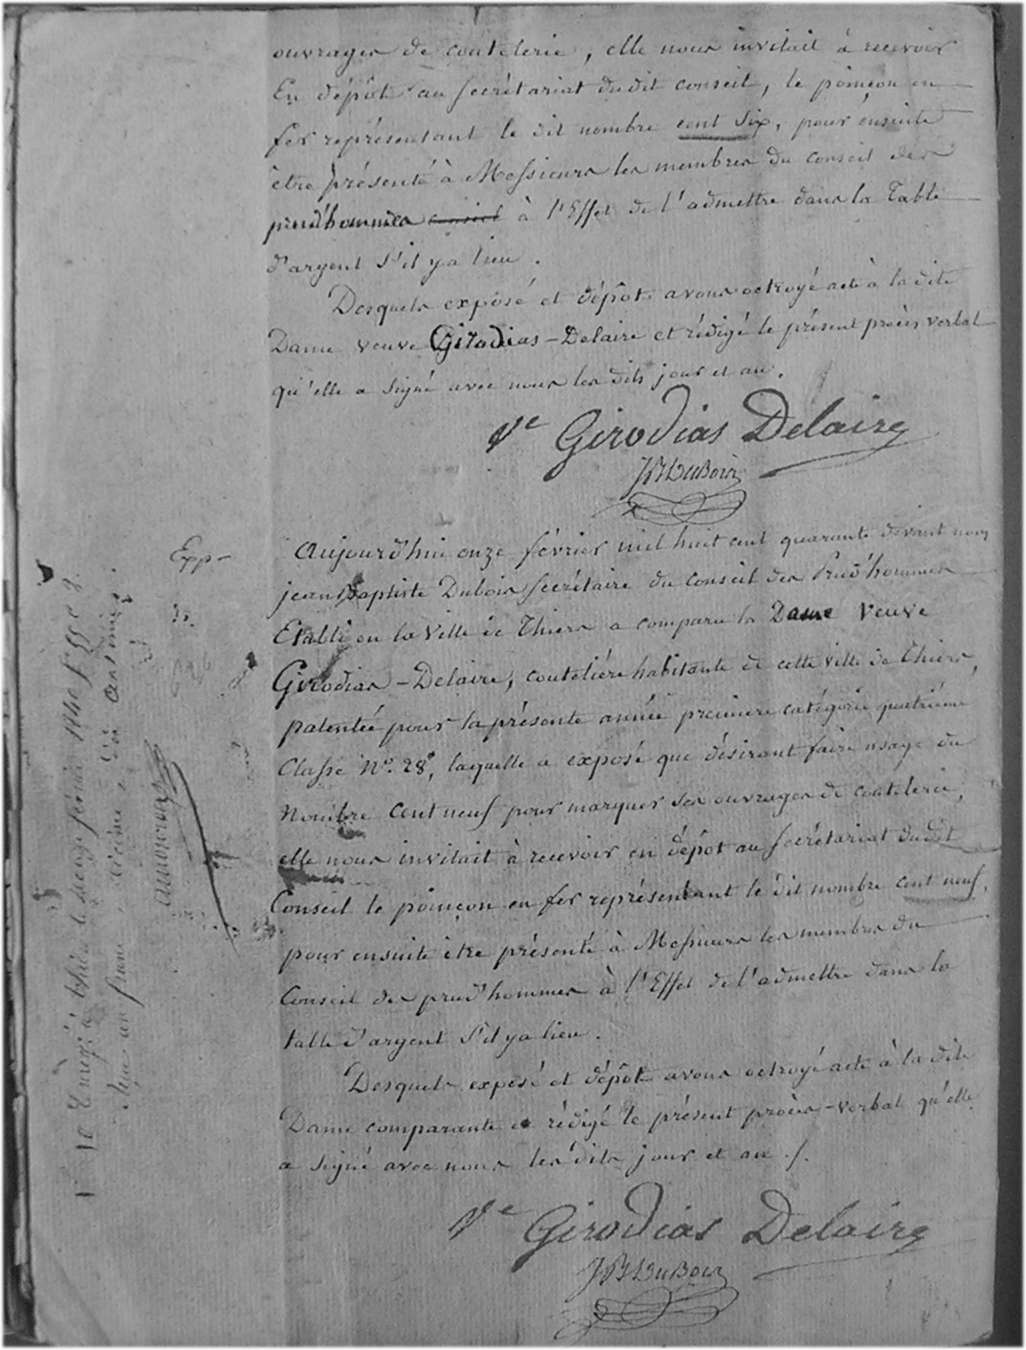 ouvrages de coutelerie, elle nous invitait à recevoir
En dépôt au secrétariat du dit conseil, le poinçon en
fer représentant le dit nombre cent six, pour ensuite
être présenté à Messieurs les membres du conseil des
prud'hommes conseil à l'Effet de l'admettre dans la Table
d'argent s'il y a lieu.
Desquels exposé et dépôt avons octroyé acte à la dite
Dame veuve Girodias-Delaire et rédigé le présent procès verbal
qu'elle a signé avec nous les dits jour et an.
Ve Girodias Delaire
JB Dubois
Exp-
Aujourd'hui onze février mil huit cent quarante devant nous
jean Baptiste Dubois secrétaire du conseil des Prud'hommes
Etabli en la ville de Thiers a comparu la Dame Veuve
Girodias-Delaire, coutelière habitante de cette ville de Thiers,
patentée pour la présente année première catégorie quatrième
Classe No. 28, laquelle a exposé que désirant faire usage du
Nombre Cent neuf pour marquer ses ouvrages de coutelerie,
elle nous invitait à recevoir en dépôt au secrétariat du dit
Conseil le poinçon en fer représentant le dit nombre cent neuf,
pour ensuite être présenté à Messieurs les membres du
Conseil des prud'hommes à l'Effet de l'admettre dans la
table d'argent s'il y a lieu.
Desquels exposé et dépôt avons octroyé acte à la dite
Dame comparante et rédigé le présent procès-verbal qu'elle
a signé avec nous les dits jour et an ./.
Ve Girodias Delaire
JB Dubois
Enregé à thiers le seize février 1840 f° 55
reçu un franc dix centimes